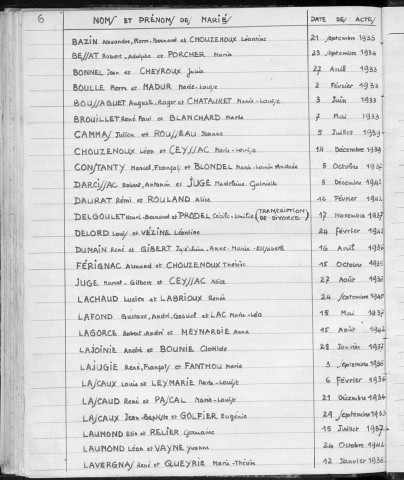 6 NOMS ET PRÉNOMS DE MARIÉS DATE DES ACTES
BAZIN Alexandre, Pierre-Bernard et CHOUZENOUX Léontine 21 Septembre 1935
BESSAT Robert, Adolphe et PORCHER Marie 23 Septembre 1934
BONNEL Jean et CHEYROUX Julia 27 Avril 1933
BOULLE Pierre et MADUR Marie-Louise 2 Février 1932
BOUSSAGUET Auguste, Roger et CHATAURET Marie-Louise 3 Juin 1933
BROUILLET René Paul et BLANCHARD Marthe 7 Mai 1933
CAMMAS Julien et ROUSSEAU Jeanne 5 Juillet 1939
CHOUZENOUX Léon et CEYSSAC Marie-Louise 14 Décembre 1939
CONSTANTY Marcel, François et BLONDEL Marie-Louise Andrée 5 Octobre
DARCISSAC Robert, Antonin et JUGE Madeleine Gabrielle 5 Décembre 1942
DAURAT Rémi et ROULAND Alice 12 Février 1942
DELGOULET Henri-Bernard et PRODEL Cécile (TRANSCRIPTION DE DIVORCE) 17 Novembre 1937
DELORD Louis et VEZINE Léontine 24 Février 1942
DUMAIN René et GIBERT Anne-Marie-Elisabeth 16 Avril 1936
FÉRIGNAC Armand et CHOUZENOUX Thérèse 15 Octobre
JUGE Marcel-Gilbert et CEYSSAC Alice 27 Août 1936
LACHAUD Lucien et LABRIOUX Renée 24 Septembre 1940
LAFOND Gustave, André, Gabriel et LAC Marie-Léa 15 Mai 1937
LAGORCE Robert André et MEYNARDIE Anne 15 Août 1942
LAJOINIE André et BOUNIE Clotilde 28 Janvier 1937
LAJUGIE René, François et FANTHOU Marie 3 Septembre 1936
LASCAUX Louis et LEYMARIE Marie-Louise 6 Février 1936
LASCAUD René et PASCAL Marie-Louise 21 Décembre 1934
LASCAUX Jean-Baptiste et GOLFIER Eugénie 29 Septembre 1933
LAUMOND Elie et RELIER Germaine 15 Juillet 1937
LAUMOND Léon et VAYNE Yvonne 24 Octobre 1942
LAVERGNAS René et QUEYRIE Marie-Thérèse 12 Janvier 1936